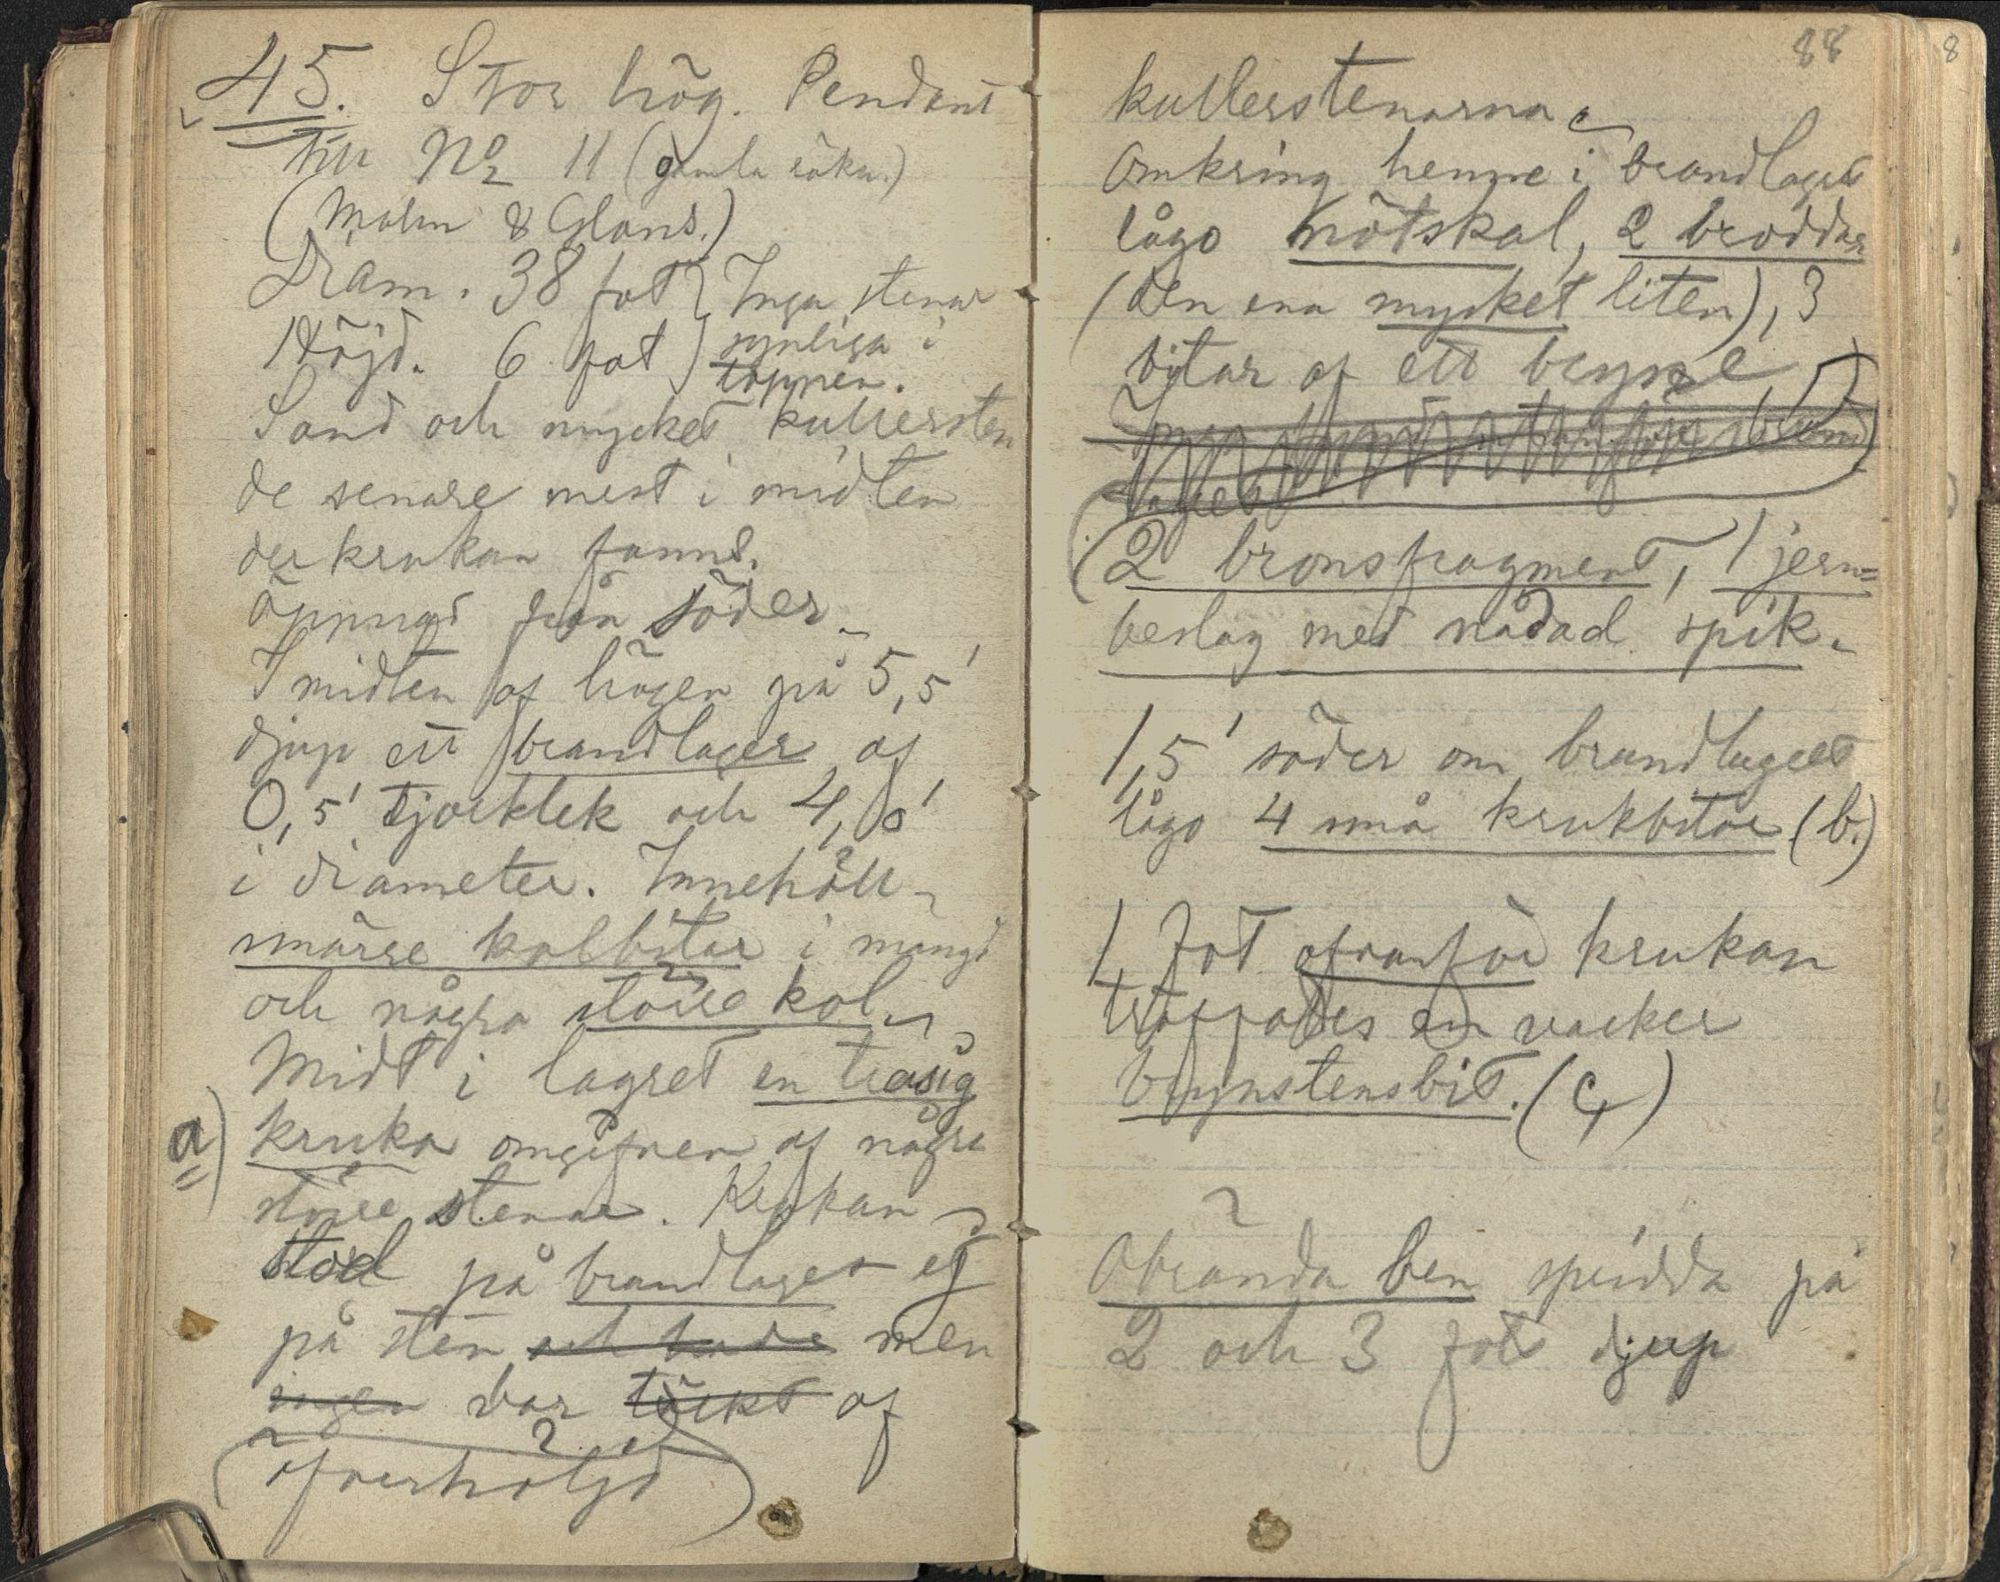 45. Stor hög. Pendant
till No 11 (gamla räkn.)
(Malm & Glans.)
Diam. 38 fot } Inga stenar
Höjd. 6 fot } synliga i
toppen.
Sand och mycket kullersten
de senare mest i midten
der krukan fanns.
Öppnad från söder.
I midten af högen på 5,5'
djup ett brandlager af
0,5' tjocklek och 4,0'
i diameter. Innehöll
smärre kolbitar i mängd
och några större kol.
Midt i lagret en trasig
a) kruka omgifven af några
större stenar. Krukan
stod på brandlager ej
på sten och hade men
ingen var täckt af
(öfverhöljd)
88
kullerstenarna.
Omkring henne i brandlagret
lågo nötskal, 2 broddar
(den ena mycket liten), 3
bitar af ett bryne
lagret
(2 bronsfragment, 1 jern=
beslag med nådad spik.
1,5' söder om brandlagret
lågo 4 små krukbitar (b.)
1 fot ofvanför krukan
träffades en vacker
brynstensbit. (c)
Obrända ben spridda på
2 och 3 fots djup
8